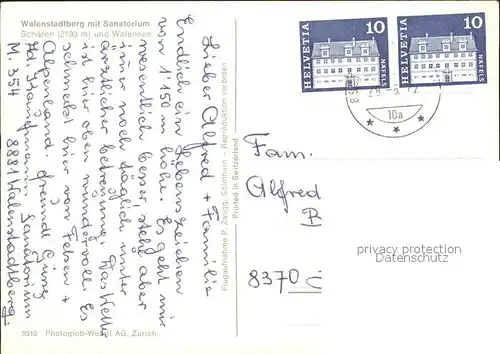 Walenstadtberg mit Sanatorium
Schären (2190 m) und Walensee
Lieber Alfred + Familie
Endlich ein Lebenszeichen
von 1'150 m höhe. Es geht mir
wesentlich besser steh aber
immer noch täglich unter
ärztlicher betreuung. Das Wetter
ist hier oben wundervoll. Es
schmeckt hier von Felsen +
Alpenland. freundl Grüsse
Kaufmann. Sanatorium
M. 354 8881 Walenstadtberg.
5510 Photoglob-Wehrli AG, Zürich
Flugaufnahme P. Zwygg, Solothurn - Reproduktion verboten
Printed in Switzerland
HELVETIA 10 NÄFELS
HELVETIA 10 NÄFELS
10a
Fam.
Alfred
8370
privacy protection
Datenschutz